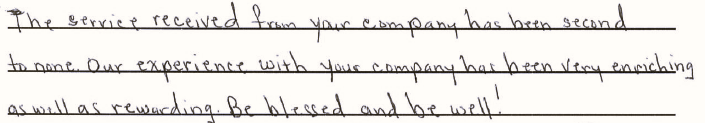 The service received from your company has been second
to none. Our experience with your company has been very enriching
as well as rewarding. Be blessed and be well!